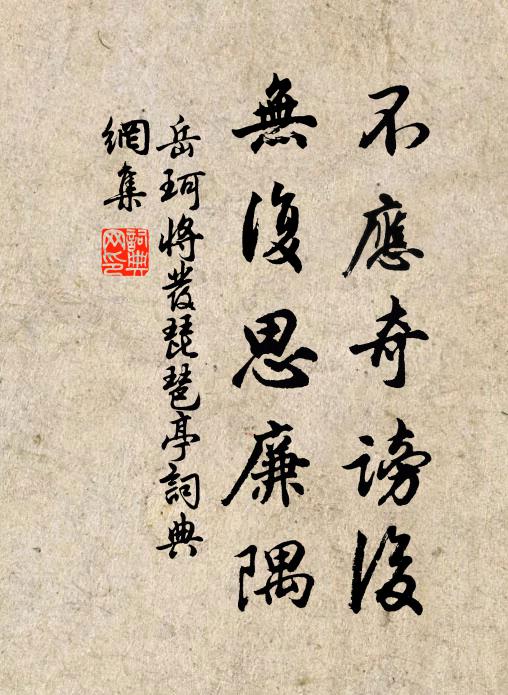 不應奇謗後
無復思廉隅
岳珂將發琵琶亭詞典
網集
詞典網印